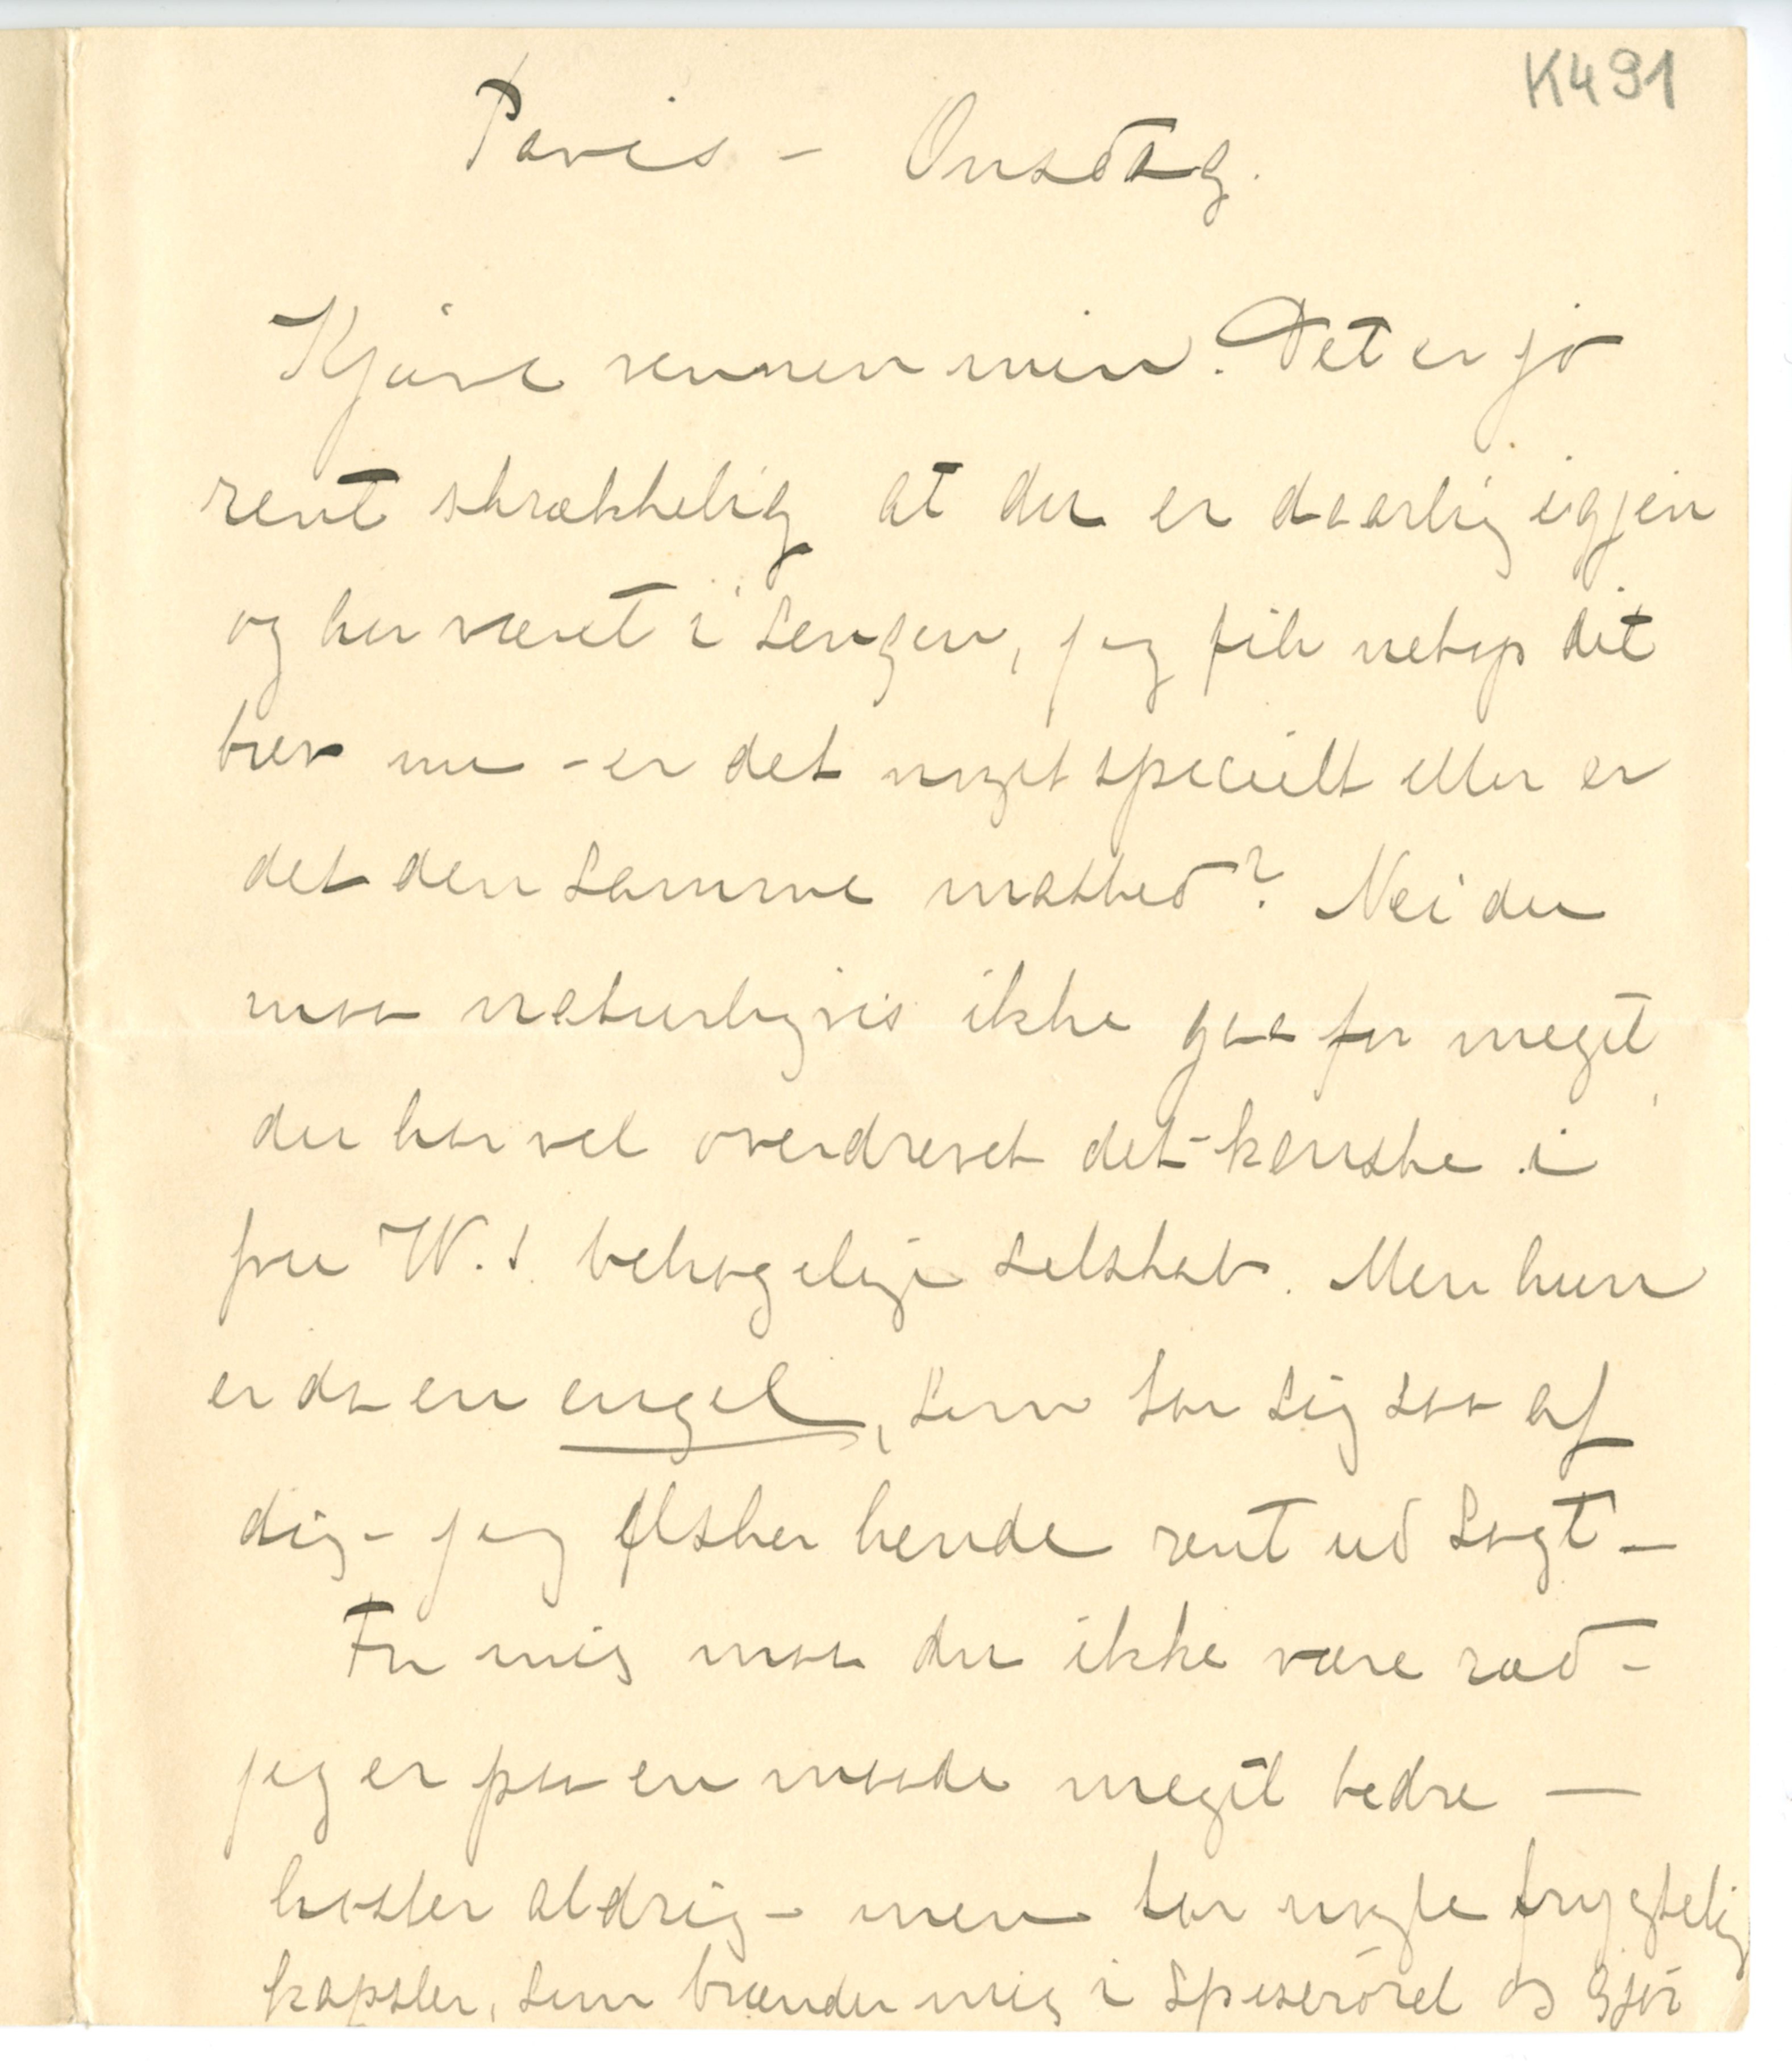 K491
Paris – Onsdag.
Kjære vennen min. Det er jo
rent skrækkelig at du er daarlig igjen
og har været i sengen, jeg fik netop dit
brev nu – er det noget specielt eller er
det den samme mathed? Nei du
maa naturligvis ikke gaa for meget,
du har vel overdrevet det – kanske i
fru W.s. behagelige selskab. Men hun
er da en engel, som tar sig saa af
dig – jeg elsker hende rent ud sagt –
For mig maa du ikke være ræd –
jeg er paa en maade meget bedre —
hoster aldrig – men tar nogle frygtelig
kapsler, som brænder mig i spiserøret og gjør